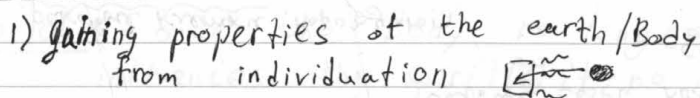 1) gaining properties of the earth/Body
from individuation